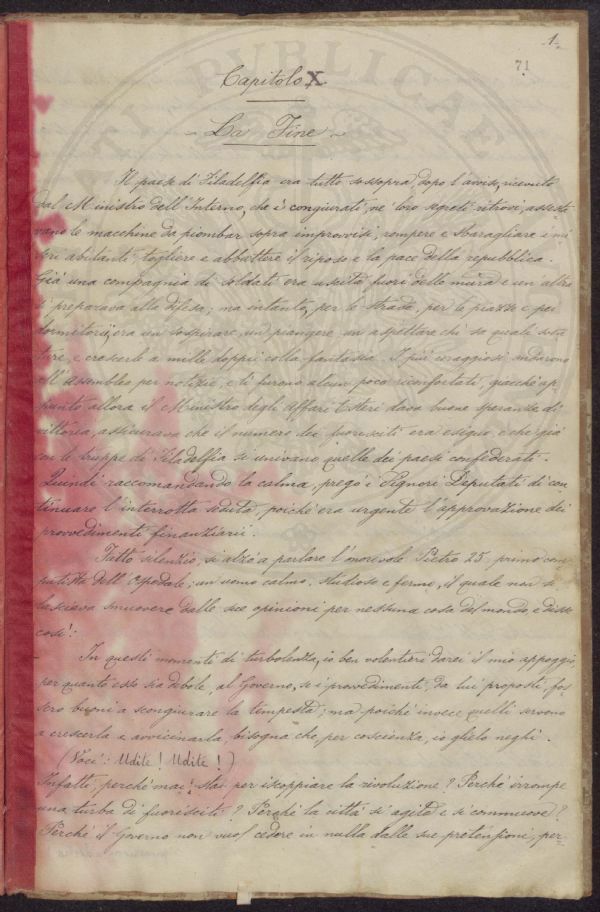 1.
71
Capitolo X.
- La Fine -
Il paese di Filadelfia era tutto sossopra, dopo l'avviso, ricevuto
dal Ministro dell'Interno, che i congiurati, ne' loro segreti ritrovi, assesta
vano le macchine da piombar sopra improvvisi, rompere e sbaragliare i mi
seri abitanti, togliere e abbattere il riposo e la pace della repubblica.
Già una compagnia di soldati era uscita fuori delle mura e un'altra
si preparava alla difesa; ma intanto, per le strade, per le piazze e pei
dormitorii, era un sospirare, un piangere, un aspettare chi sa quale
ture, e crescerle a mille doppi colla fantasia. I più coraggiosi andarono
all'assemblea per notizie, e lì furono alcun poco riconfortati, giacchè ap
punto allora il Ministro degli Affari Esteri dava buone speranze di
vittoria, assicurava che il numero dei fuorusciti era esiguo, e che già
con le truppe di Filadelfia si univano quelle dei paesi confederati.
Quindi raccomandando la calma, pregò i Signori Deputati di con
tinuare l'interrotta seduta, poichè era urgente l'approvazione dei
provvedimenti finanziarii.
Fatto silenzio, si alzò a parlare l'onorevole Pietro 25. primo com
putista dell'Ospedale; un uomo calmo, studioso e fermo, il quale non si
lasciava smuovere dalle sue opinioni per nessuna cosa del mondo, e disse
così:
- In questi momenti di turbolenza, io ben volentieri darei il mio appoggio,
per quanto esso sia debole, al Governo, se i provvedimenti, da lui proposti, fos
sero buoni a scongiurare la tempesta; ma poichè invece quelli servono
a crescerla e avvicinarla, bisogna che, per coscienza, io glielo neghi.
(Voci: Udite! Udite!)
Infatti, perchè mai sta per iscoppiare la rivoluzione? Perchè irrompe
una turba di fuorusciti? Perchè la città si agita e si commuove?
Perchè il Governo non vuol cedere in nulla dalle sue pretenzioni, per-